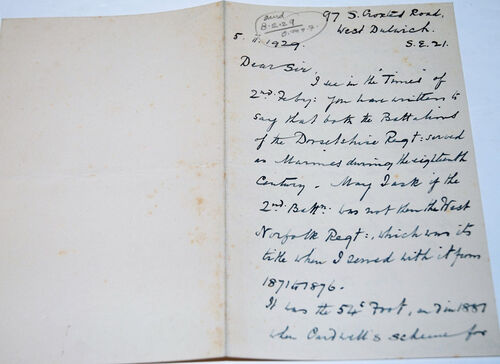 and
8-2-29
97 S. Croxted Road,
West Dulwich.
S.E.21.
5. 1929.
Dear Sir,
I see in the "Times" of
2nd. Feby: you have written to
say that both the Battalions
of the Dorsetshire Regt: served
as Marines during the eighteenth
Century. May I ask if the
2nd. Battn. was not then the West
Norfolk Regt:, which was its
title when I served with it from
1871 to 1876.
It was the 54th Foot, and in 1881
when Cardwell's scheme for